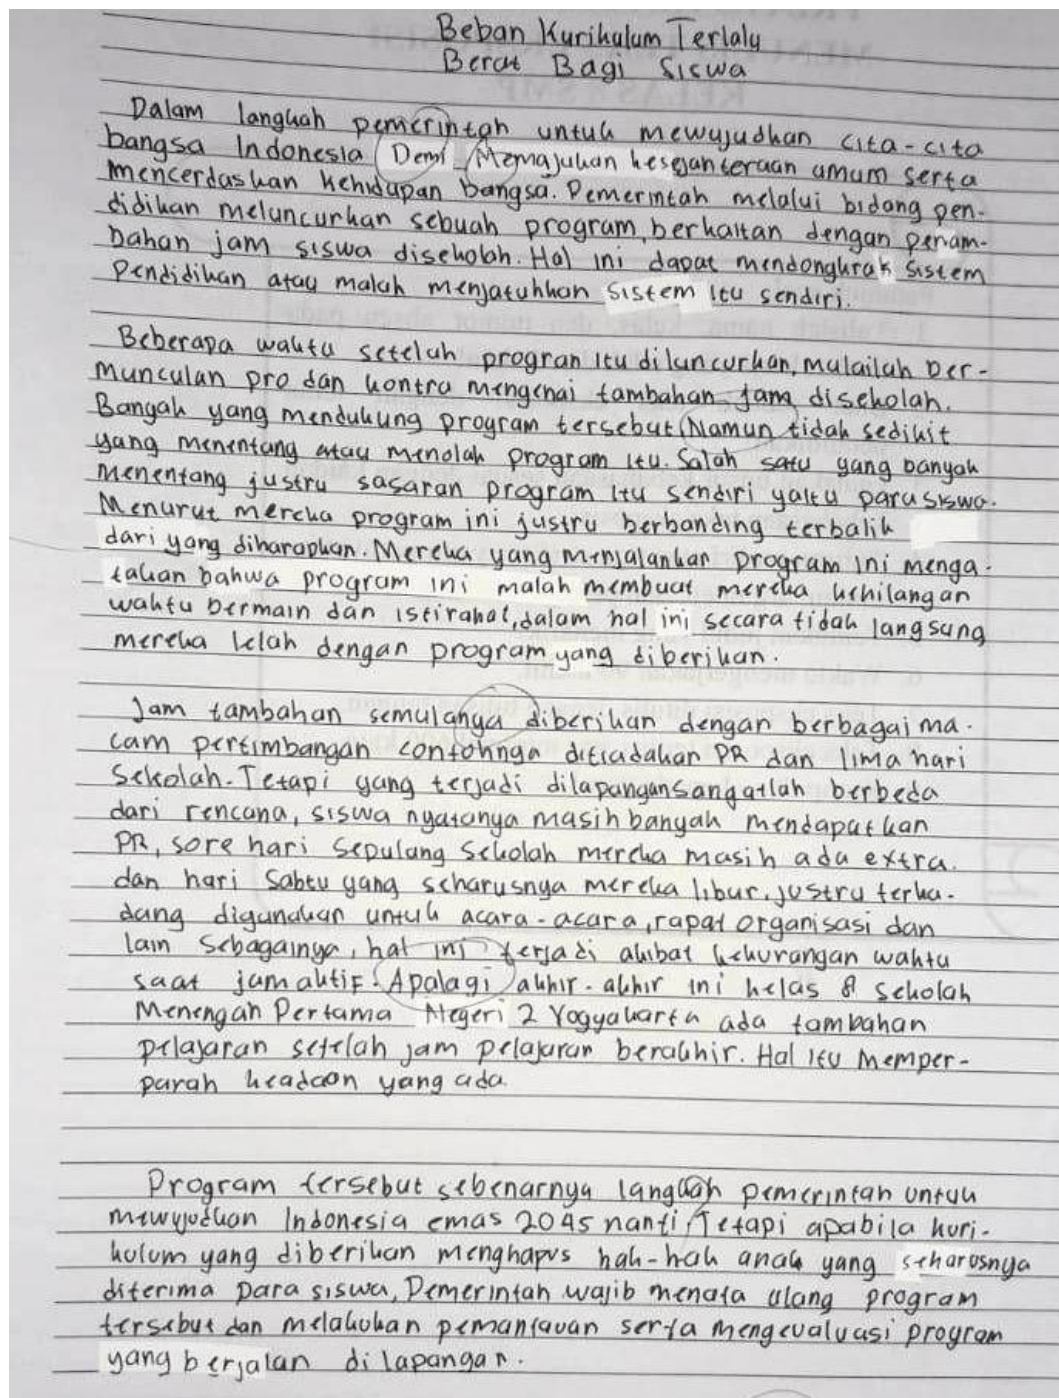 Beban Kurikulum Terlalu
Berat Bagi Siswa
Dalam langkah pemerintah untuk mewujudkan cita-cita
bangsa Indonesia Demi Memajukan kesejahteraan umum serta
mencerdaskan kehidupan bangsa. Pemerintah melalui bidang pen-
didikan meluncurkan sebuah program, berkaitan dengan penam-
bahan jam siswa disekolah. Hal ini dapat mendongkrak sistem
pendidikan atau malah menjatuhkan sistem itu sendiri.
Beberapa waktu setelah progran itu diluncurkan, mulailah ber-
munculan pro dan kontra mengenai tambahan jam disekolah.
Bangak yang mendukung program tersebut Namun tidak sedikit
yang menentang atau menolak program itu. Salah satu yang banyak
menentang justru sasaran program itu sendiri yaitu para siswa.
Menurut mereka program ini justru berbanding terbalik
dari yang diharapkan. Mereka yang menjalankan program ini menga-
takan bahwa program ini malah membuat mereka kehilangan
waktu bermain dan istirahat, dalam hal ini secara tidak langsung
mereka lelah dengan program yang diberikan.
Jam tambahan semulanya diberikan dengan berbagai ma-
cam pertimbangan contohnga ditiadakan PR dan lima hari
Sekolah. Tetapi yang terjadi dilapangan sangatlah berbeda
dari rencana, siswa nyatanya masih banyak mendapatkan
PR, sore hari sepulang sekolah mereka masih ada extra.
dan hari Sabtu yang seharusnya mereka libur, justru terka-
dang digunakan untuk acara-acara, rapat organisasi dan
lain sebagainya, hal ini terjadi akibat kekurangan waktu
saat jam aktif. Apalagi akhir-akhir ini kelas 8 sekolah
Menengah Pertama Negeri 2 Yogyakarta ada tambahan
pelajaran setelah jam pelajaran berakhir. Hal itu memper-
parah keadaan yang ada.
Program tersebut sebenarnya langkah pemerintah untuk
mewujudkan Indonesia emas 2045 nanti, Tetapi apabila kuri-
kulum yang diberikan menghapus hak-hak anak yang seharusnya
diterima para siswa, Pemerintah wajib menata ulang program
tersebut dan melakukan pemantauan serta mengevaluasi program
yang berjalan di lapangan.